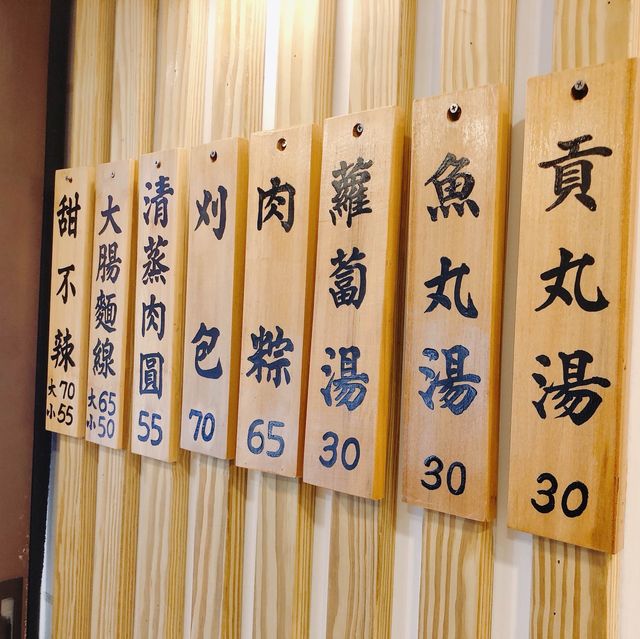 貢丸湯
30
魚丸湯
30
蘿蔔湯
30
肉粽
65
刈包
70
清蒸肉圓
55
大腸麵線
大65
小50
甜不辣
大70
小55